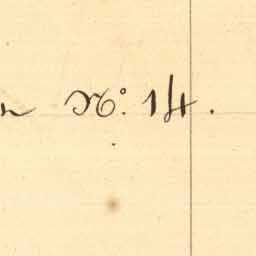 No: 14.